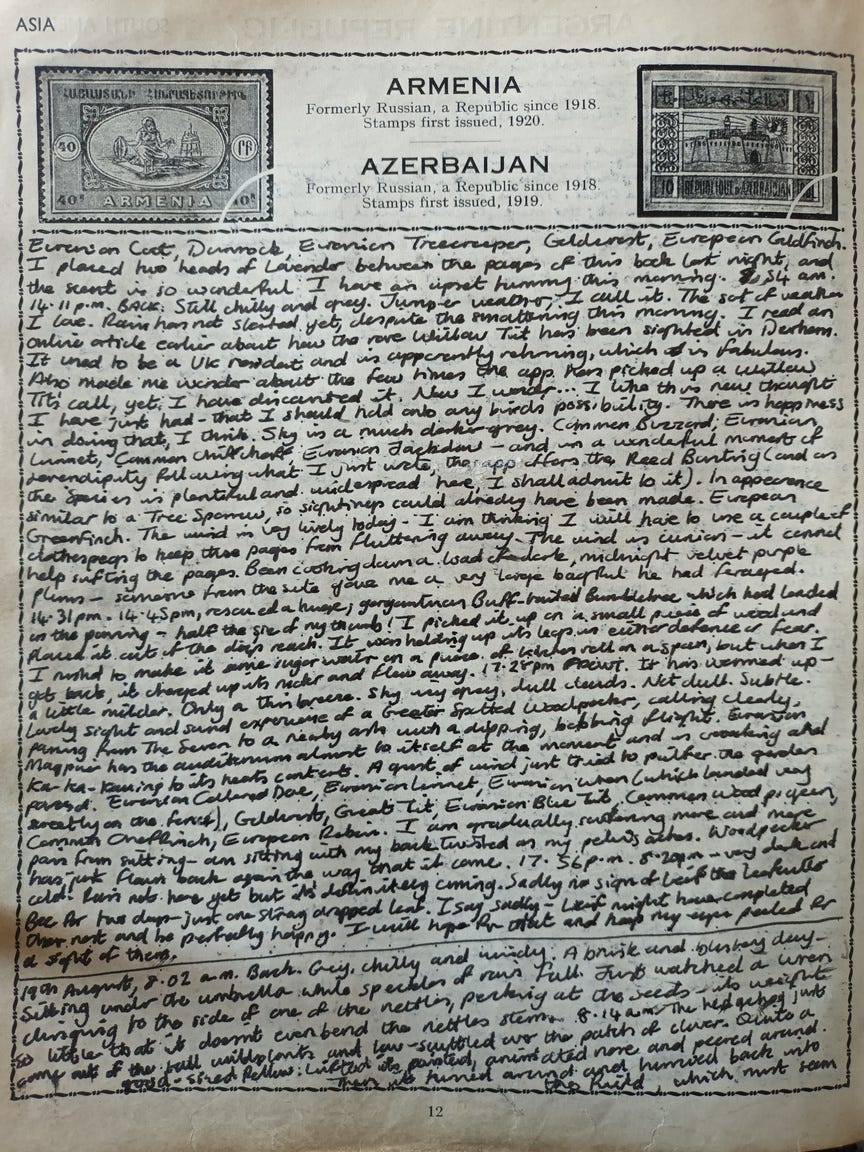 ASIA
ՀԱՅԱՍՏԱՆԻ ՀԱՆՐԱՊԵՏՈՒԹԻՒՆ
40
ՐԲ
40
ARMENIA
ARMENIA
Formerly Russian, a Republic since 1918.
Stamps first issued, 1920.
AZERBAIJAN
Formerly Russian, a Republic since 1918.
Stamps first issued, 1919.
10 REPUBLIQUE D'AZERBAIDJAN
Eurasian Coot, Dunnock, Eurasian Treecreeper, Goldcrest, European Goldfinch.
I placed two heads of lavender between the pages of this book last night, and
the scent is so wonderful. I have an upset tummy this morning. 8.54 am.
14.11 p.m. BACK. Still chilly and grey. Jumper weather, I call it. The sort of weather
I love. Rain has not started yet, despite the smattering this morning. I read an
online article earlier about how the rare Willow Tit has been sighted in
It used to be a UK resident and is apparently returning, which is fabulous.
Also made me wonder about the few times the app has picked up a Willow
Tit's call, yet I have discounted it. Now I wonder... I like this new thought
I have just had - that I should hold onto any birds possibility. There is happiness
in doing that, I think. Sky is a much darker grey. Common Buzzard, Eurasian
Linnet, Common Chiffchaff, Eurasian Jackdaw - and in a wonderful moment of
serendipity following what I just wrote, the app offers the Reed Bunting (and as
the species is plentiful and widespread here, I shall admit to it). In appearence
similar to a Tree Sparrow, so sightings could already have been made. European
Greenfinch. The wind is very lively today - I am thinking I will have to use a couple of
clothespegs to keep these pages from fluttering away. The wind is curious - it cannot
help sifting the pages. Been cooking down a load of dark, midnight velvet purple
plums - someone from the site gave me a very large bagful he had foraged.
14.31pm. 14.45pm, rescued a huge, gargantuan Buff-tailed Bumblebee which had landed
on the paving - half the size of my thumb! I picked it up on a small piece of wood and
placed it out of the dog's reach. It was holding up its legs in either defence or fear.
I rushed to make it some sugar water on a piece of kitchen roll on a spoon, but when I
got back, it charged up its motor and flew away. 17.28pm It has warmed up -
a little milder. Only a thin breeze. Sky very grey, dull clouds. Not dull. Subtle.
Lovely sight and sound experience of a Greater Spotted Woodpecker, calling clearly,
passing from The Seven to a nearby ash with a dipping, bobbing flight. Eurasian
Magpie has the auditorium almost to itself at the moment and is croaking and
ka-ka-kawing to its hearts content. A gust of wind just tried to pilfer the garden
parasol. Eurasian Collared Dove, Eurasian Linnet, Eurasian Wren (which landed very
sweetly on the fence), Goldcrest, Great Tit, Eurasian Blue Tit, Common Wood pigeon,
Common Chaffinch, European Robin. I am gradually suffering more and more
pain from sitting - am sitting with my back twisted as my pelvis aches. Woodpecker
has just flown back again the way that it came. 17.56p.m. 8.20pm - very dark and
cold. Rain not here yet but its definitely coming. Sadly no sign of Leif the Leafcutter
Bee for two days - just one stray dropped leaf. I say sadly - Leif might have completed
their nest and be perfectly happy. I will hope for that and keep my eyes peeled for
a sight of them.
19th August, 8.02 a.m. Back. Grey, chilly and windy. A brisk and blustery day -
Sitting under the umbrella while speckles of rain fall. Just watched a wren
clinging to the side of one of the nettles, pecking at the seeds - its weight
so little that it doesn't even bend the nettles stem. 8.14am - The hedgehog just
came out of the tall wildplants and low-scuttled over the patch of clover. Quite a
good-sized fellow. Lifted its pointed, animated nose and peered around.
Then its turned around and hurried back into
the wild, which must seem
12